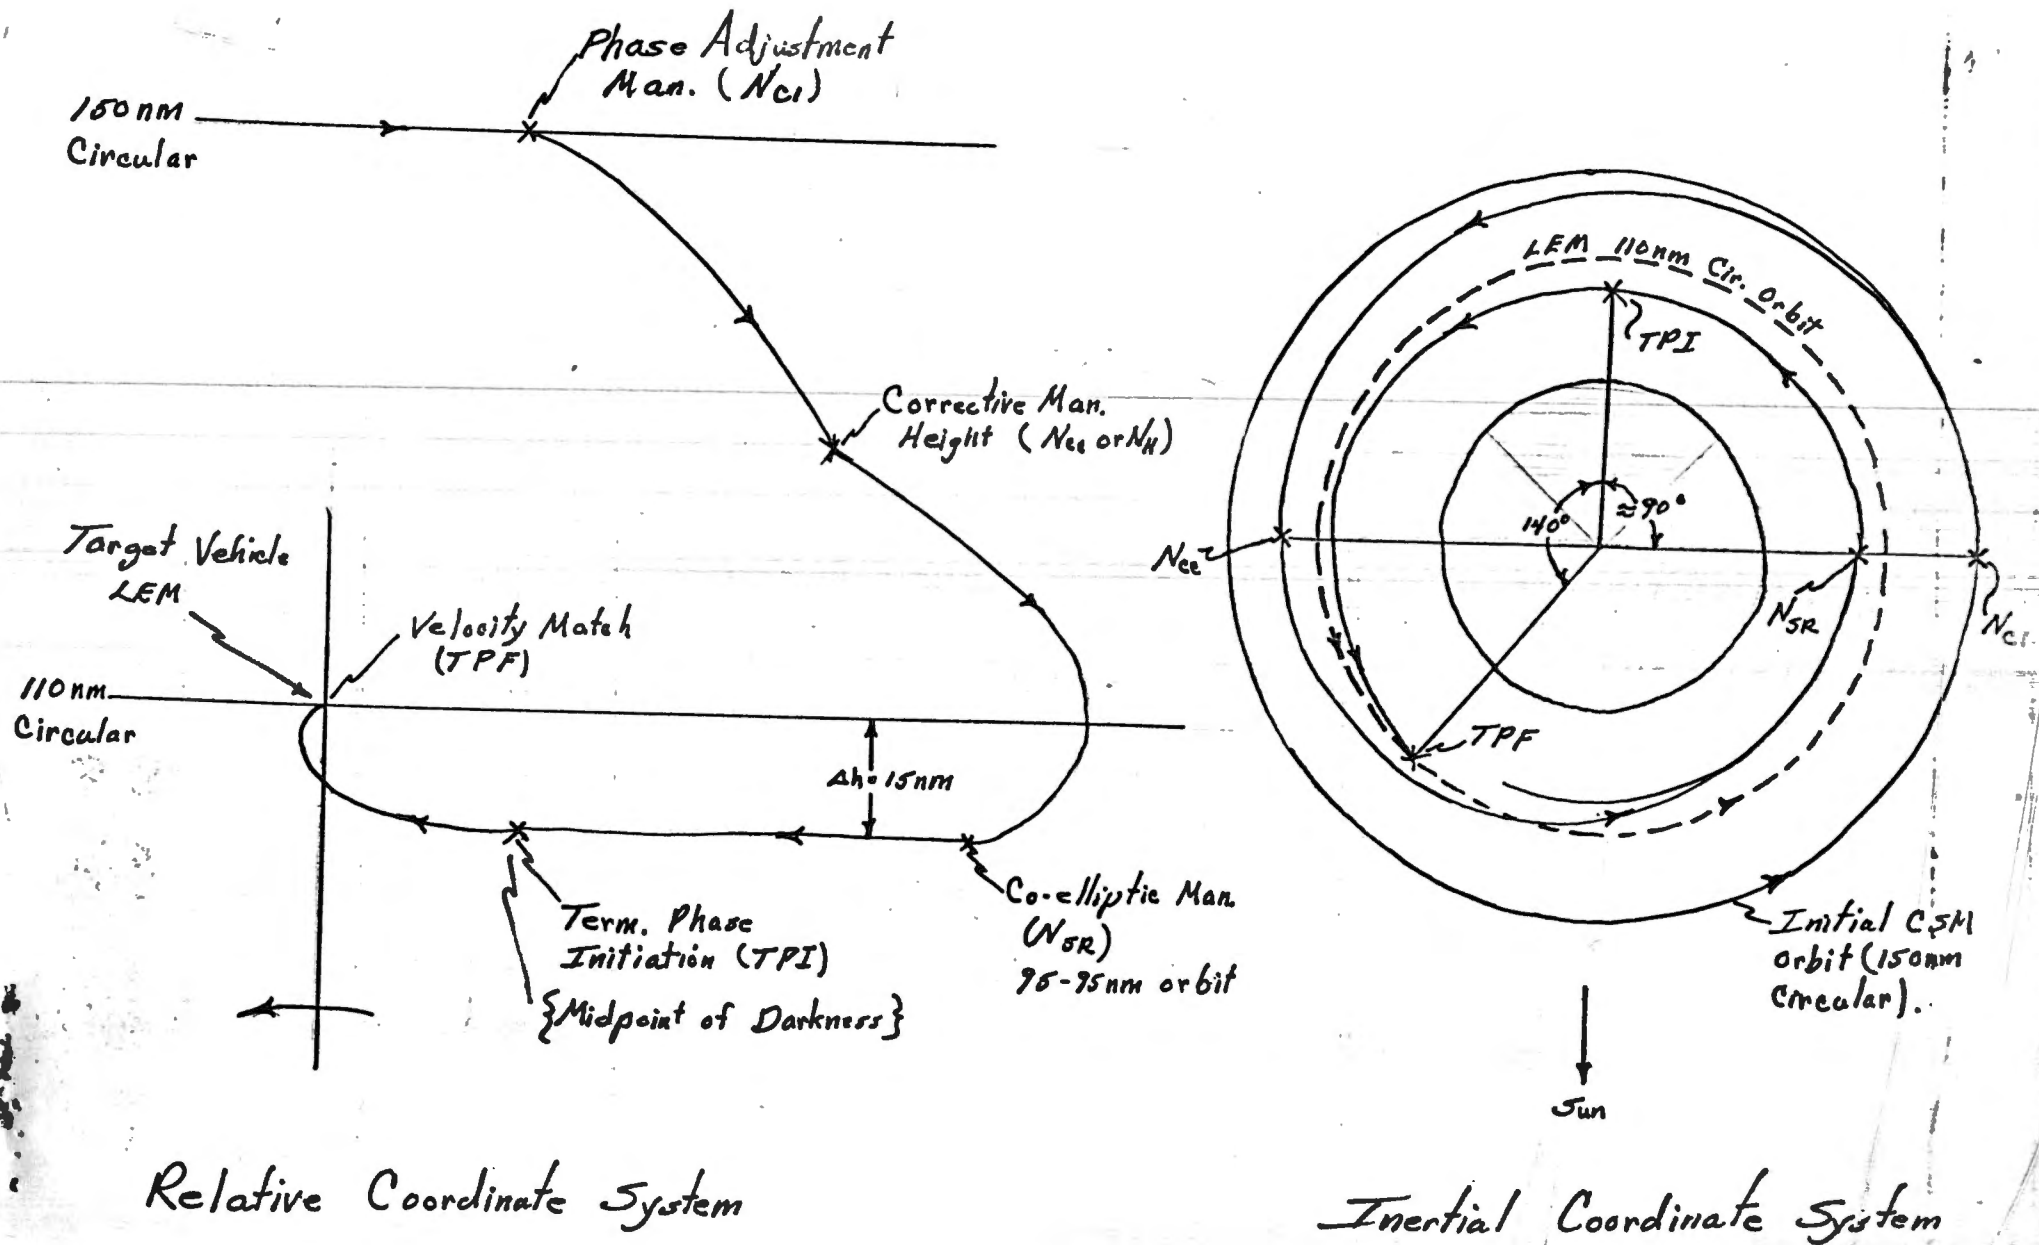 Phase Adjustment
Man. (NC1)
150nm
Circular
Corrective Man.
Height (Ncc or NH)
Target Vehicle
LEM
Velocity Match
(TPF)
110nm
Circular
Δh=15nm
Term. Phase
Initiation (TPI)
{Midpoint of Darkness}
Co-elliptic Man.
(NSR)
95-95nm orbit
Relative Coordinate System
LEM 110nm Cir. Orbit
TPI
140°
≈90°
Ncc
NSR
NC1
TPF
Initial CSM
orbit (150nm
Circular).
Sun
Inertial Coordinate System